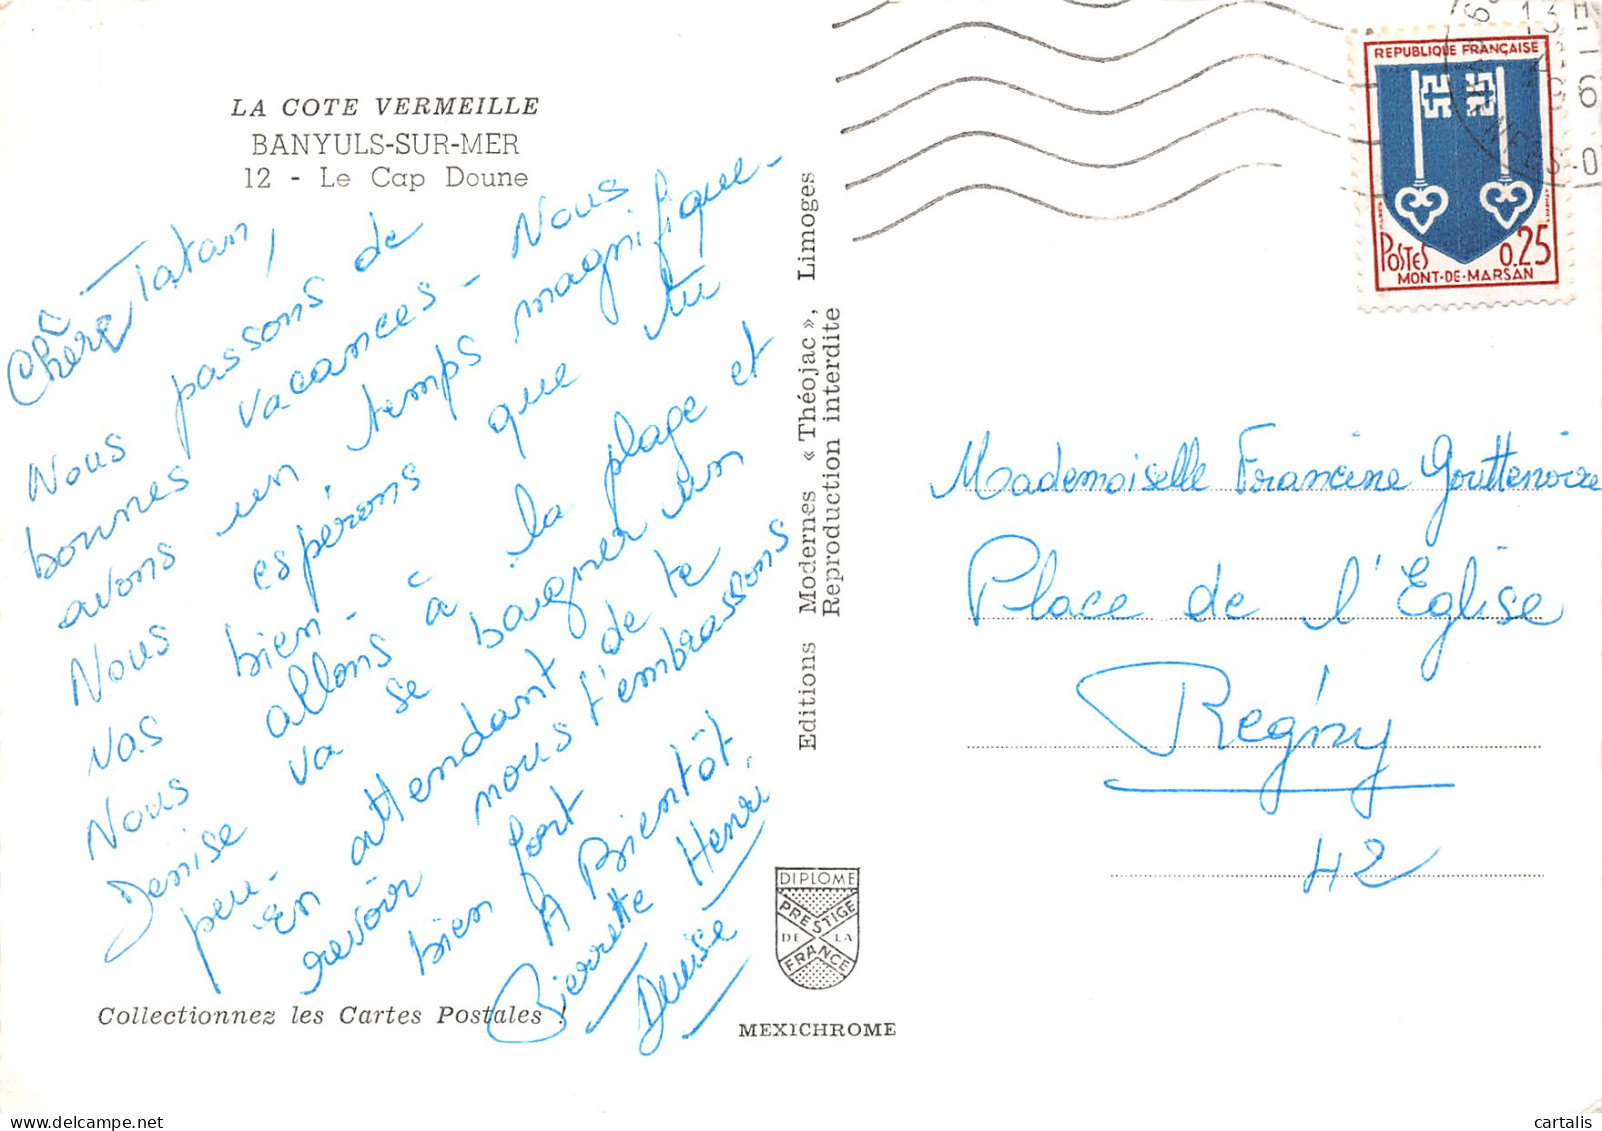 LA COTE VERMEILLE
BANYULS-SUR-MER
12 - Le Cap Doune
Chère Tatan,
Nous passons de
bonnes vacances - Nous
avons un temps magnifique -
Nous espérons que tu
vas bien -
Nous allons à la plage et
Denise va se baigner un
peu -
En attendant de te
revoir nous t'embrassons
bien fort
A Bientôt.
Pierrette Henri
Denise
Collectionnez les Cartes Postales !
Editions Modernes « Théojac », Limoges
Reproduction interdite
DIPLOME
PRESTIGE
DE LA
FRANCE
MEXICHROME
REPUBLIQUE FRANÇAISE
POSTES 0,25
MONT-DE-MARSAN
13 H
Mademoiselle Francine Gouttenoire
Place de l'Eglise
Regny
42
cartalis